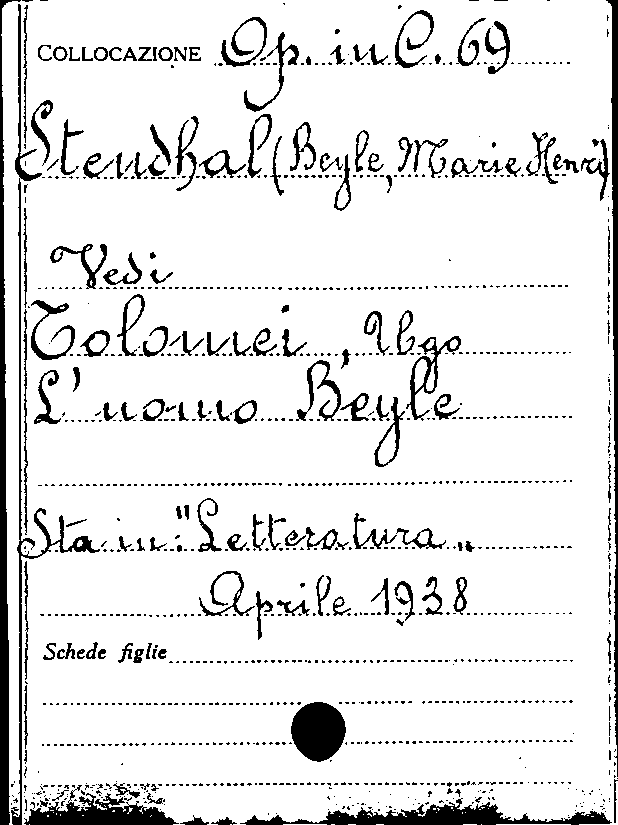 COLLOCAZIONE Op. in C. 69
Stendhal (Beyle, Marie Henri)
Vedi
Tolomei, Ubgo
L'uomo Beyle
Sta in: "Letteratura„
Aprile 1938
Schede figlie